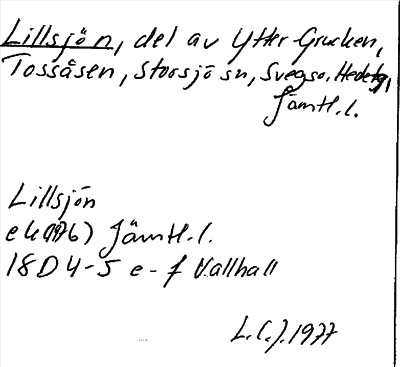 Lillsjön, del av Ytter-Grucken,
Tossåsen, Storsjö sn, Svegs o. Hedetg,
Jämtl.l.
Lillsjön
ek(1976) Jämtl.l.
18D 4-5 e-f Vallhall
L.C.J. 1977